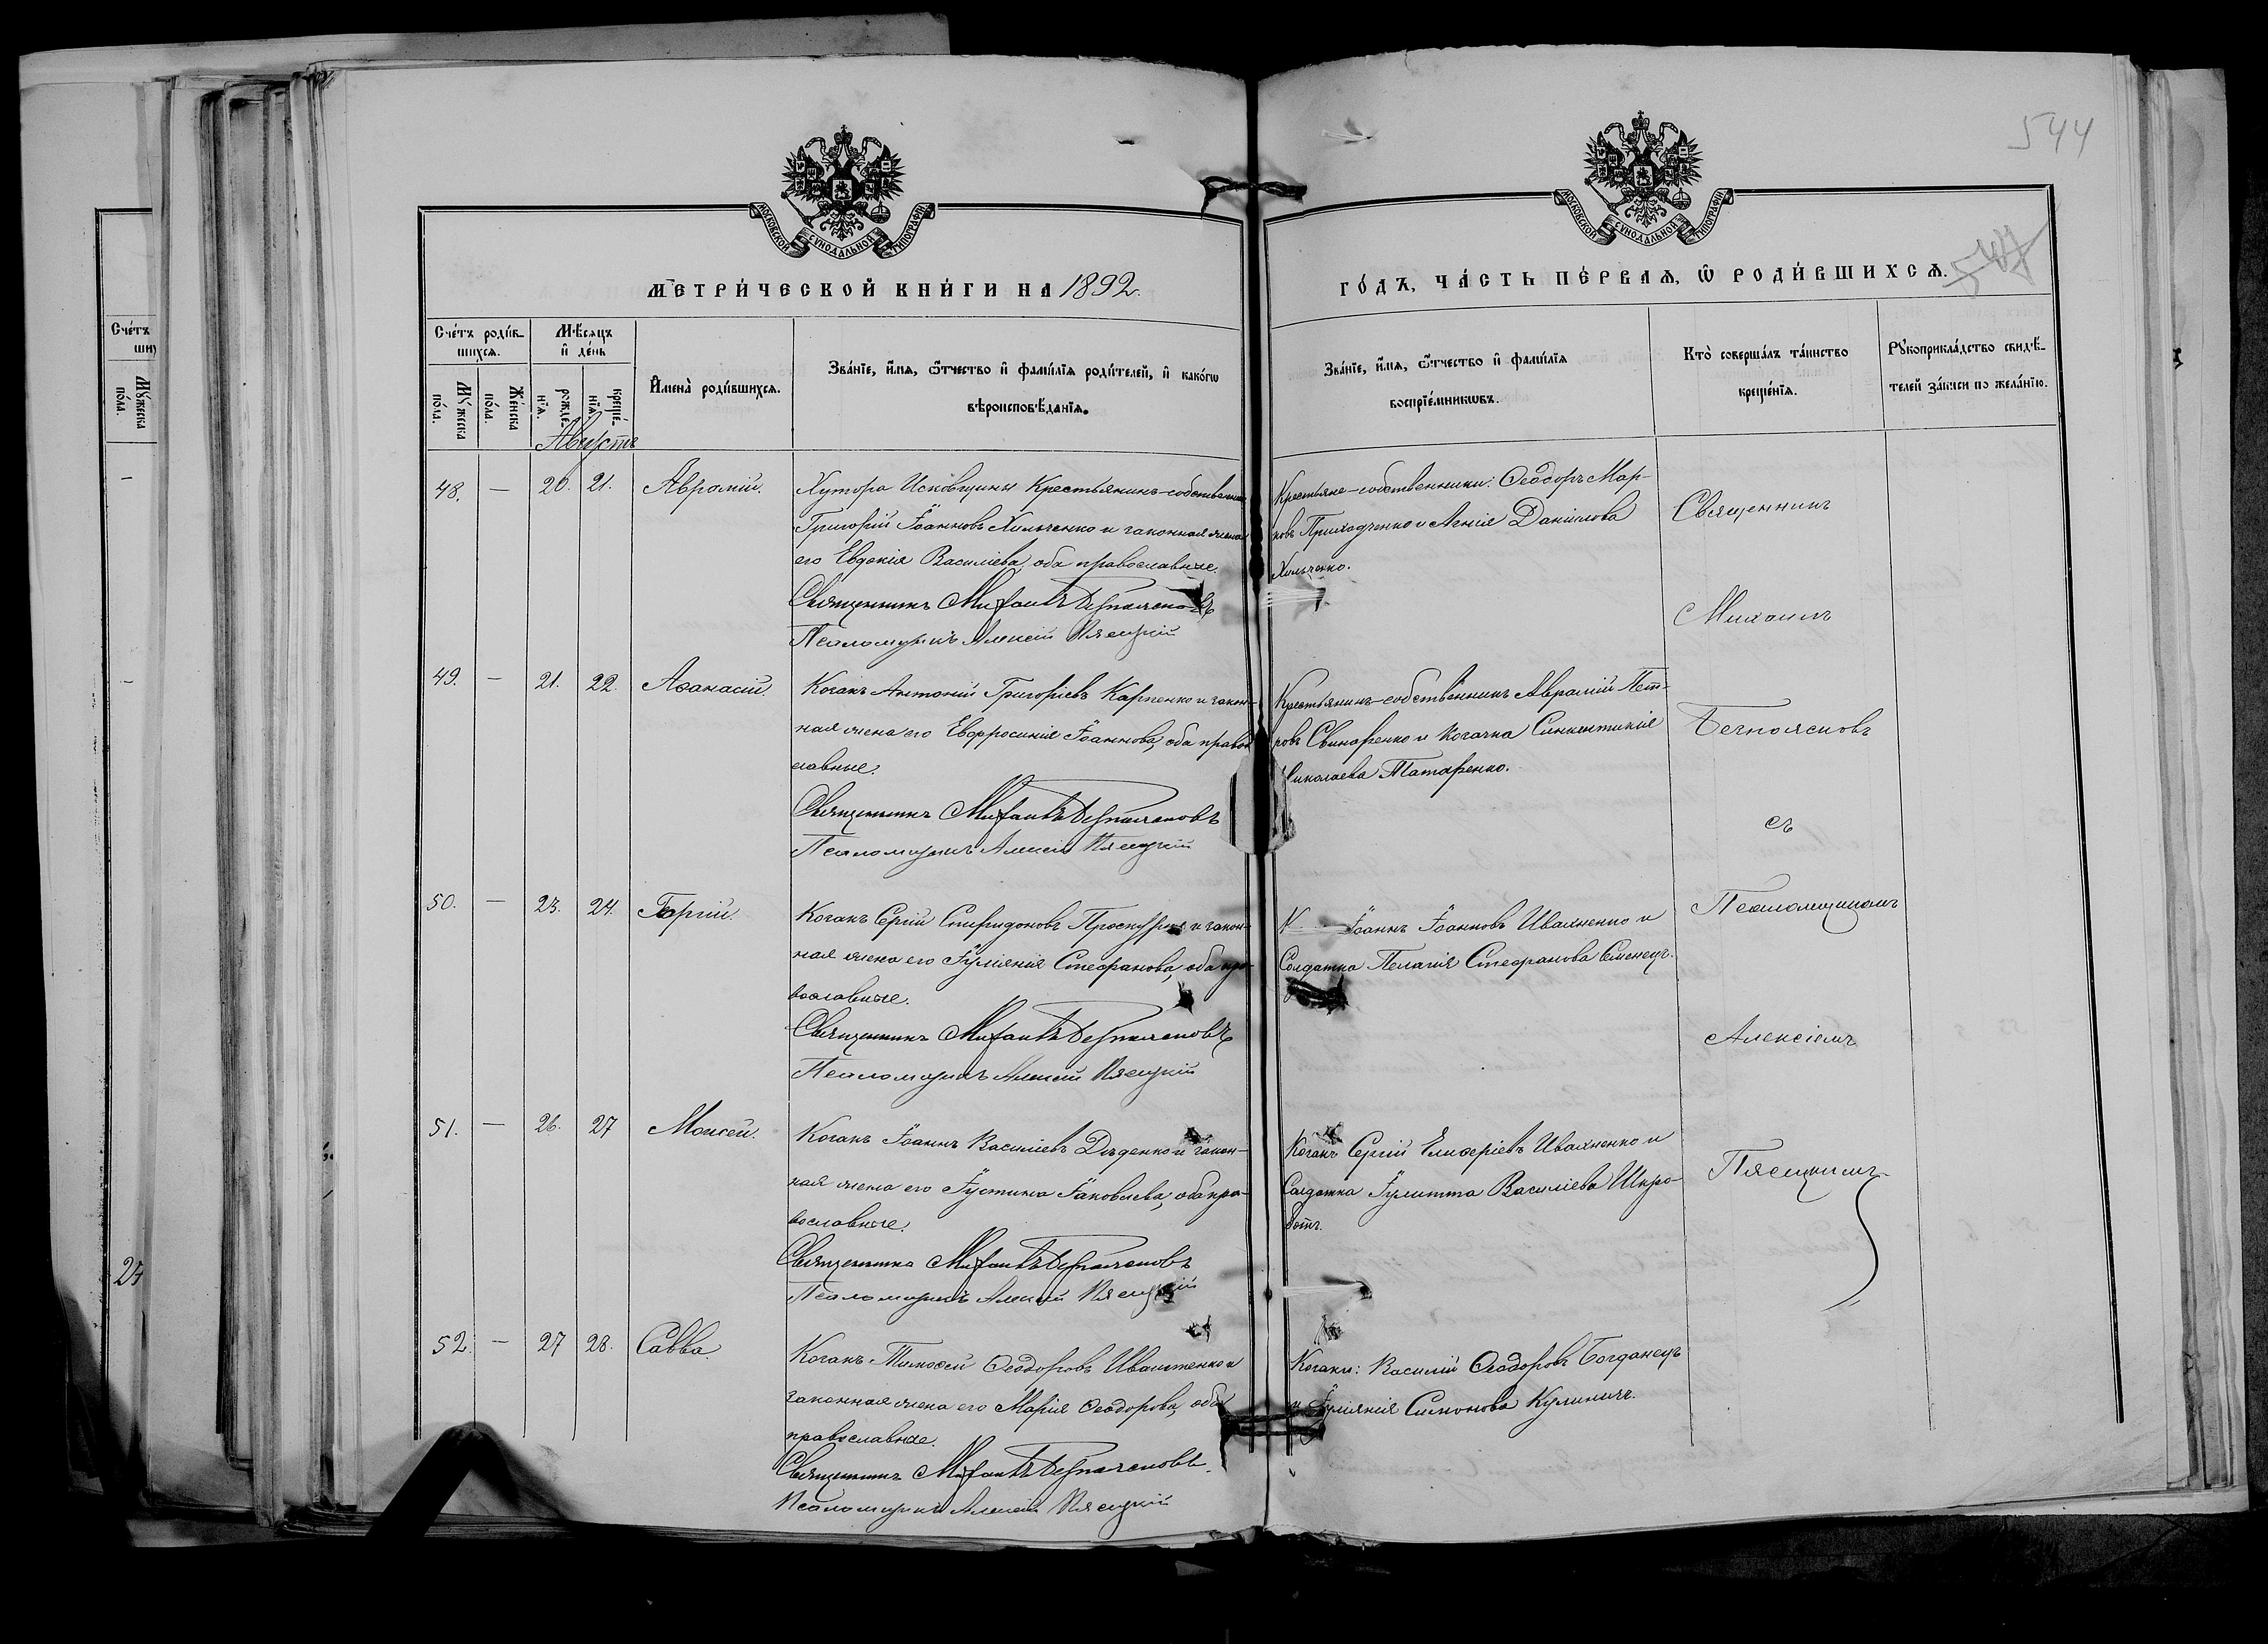 544
547
МОСКОВСКОЙ СУНОДАЛЬНОЙ ТИПОГРАФІИ
МОСКОВСКОЙ СУНОДАЛЬНОЙ ТИПОГРАФІИ
МЕТРИ́ЧЕСКОЙ КНИ́ГИ НА 1892.
ГО́ДЪ, ЧА́СТЬ ПЕ́РВАѦ, Ѿ РОДИ́ВШИХСѦ.
Сче́тъ роди́вшихсѧ.
Мꙋ́жеска по́ла.
Же́нска по́ла.
Мѣ́сѧцъ и де́нь
рожде́нїѧ.
креще́нїѧ.
Имена̀ роди́вшихсѧ.
Зва́нїе, и́мѧ, ѻ́тчество и фами́лїѧ роди́телей, и како́гѡ
вѣроисповѣ́данїѧ.
Зва́нїе, и́мѧ, ѻ́тчество и фами́лїѧ
воспрїе́мникѡвъ.
Кто̀ соверша́лъ та́инство
креще́нїѧ.
Рꙋкоприкла́дство свидѣ́-
телей за́писи по жела́нїю.
Августъ
48. — 20. 21. Аврамій.
Хутора Исковщины Крестьянинъ-собственникъ
Григорій Іоанновъ Хильченко и законная жена
его Евдокія Василіева, оба православные.
Священникъ Михаилъ Безпоясновъ
Псаломщикъ Алексій Пясецкій
Крестьяне-собственники: Ѳеодоръ Мар-
ковъ Приходченко и Агнія Даніилова
Хильченко.
Священникъ
Михаилъ
49. — 21. 22. Аѳанасій.
Козакъ Антоній Григоріевъ Карпенко и закон-
ная жена его Евфросинія Іоаннова, оба право-
славные.
Священникъ Михаилъ Безпоясновъ
Псаломщикъ Алексій Пясецкій
Крестьянинъ-собственникъ Аврамій Пет-
ровъ Свинаренко и козачка Синклитикія
Николаева Татаренко.
Безпоясновъ
съ
50. — 23. 24. Георгій.
Козакъ Сергій Спиридоновъ Проскурня и закон-
ная жена его Іуліянія Стефанова, оба пра-
вославные.
Священникъ Михаилъ Безпоясновъ
Псаломщикъ Алексій Пясецкій
Іоаннъ Іоанновъ Ивахненко и
Солдатка Пелагія Стефанова Семенецъ.
Псаломщикомъ
Алексіемъ
51. — 26. 27 Моисей.
Козакъ Іоаннъ Василіевъ Дзюденко и закон-
ная жена его Іустина Іаковлева, оба пра-
вославные.
Священникъ Михаилъ Безпоясновъ
Псаломщикъ Алексій Пясецкій
Козакъ Сергій Елиѳеріевъ Ивахненко и
Солдатка Іулитта Василіева Шкро-
ботъ.
Пясецкимъ
52. — 27 28. Савва.
Козакъ Тимоѳей Ѳеодоровъ Ивахненко и
законная жена его Марія Ѳеодорова, оба
православные.
Священникъ Михаилъ Безпоясновъ
Псаломщикъ Алексій Пясецкій
Козаки: Василій Ѳеодоровъ Богданецъ
и Іуліянія Симонова Кулиничъ.
Сче́тъ
Мꙋ́жеска по́ла.
27